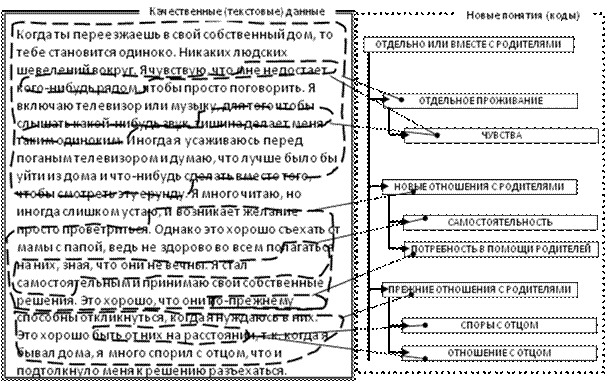 Качественные (текстовые) данные
Когда ты переезжаешь в свой собственный дом, то
тебе становится одиноко. Никаких людских
шевелений вокруг. Я чувствую, что мне недостает
кого-нибудь рядом, чтобы просто поговорить. Я
включаю телевизор или музыку, для того чтобы
слышать какой-нибудь звук, тишина делает меня
таким одиноким. Иногда я усаживаюсь перед
поганым телевизором и думаю, что лучше было бы
уйти из дома и что-нибудь сделать вместо того,
чтобы смотреть эту ерунду. Я много читаю, но
иногда слишком устаю, и возникает желание
просто проветриться. Однако это хорошо съехать от
мамы с папой, ведь не здорово во всем полагаться
на них, зная, что они не вечны. Я стал
самостоятельным и принимаю свои собственные
решения. Это хорошо, что они по-прежнему
способны откликнуться, когда я нуждаюсь в них.
Это хорошо быть от них на расстоянии, т.к. когда я
бывал дома, я много спорил с отцом, что и
подтолкнуло меня к решению разъехаться.
Новые понятия (коды)
ОТДЕЛЬНО ИЛИ ВМЕСТЕ С РОДИТЕЛЯМИ
ОТДЕЛЬНОЕ ПРОЖИВАНИЕ
ЧУВСТВА
НОВЫЕ ОТНОШЕНИЯ С РОДИТЕЛЯМИ
САМОСТОЯТЕЛЬНОСТЬ
ПОТРЕБНОСТЬ В ПОМОЩИ РОДИТЕЛЕЙ
ПРЕЖНИЕ ОТНОШЕНИЯ С РОДИТЕЛЯМИ
СПОРЫ С ОТЦОМ
ОТНОШЕНИЕ С ОТЦОМ